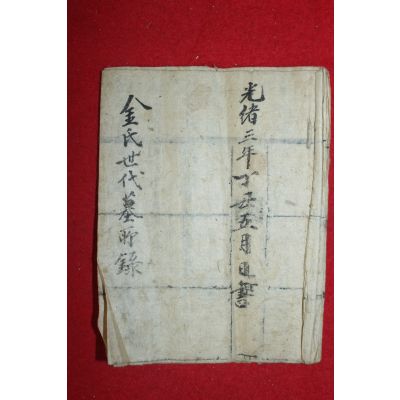 光緒三年丁丑五月日書
金氏世代墓所錄